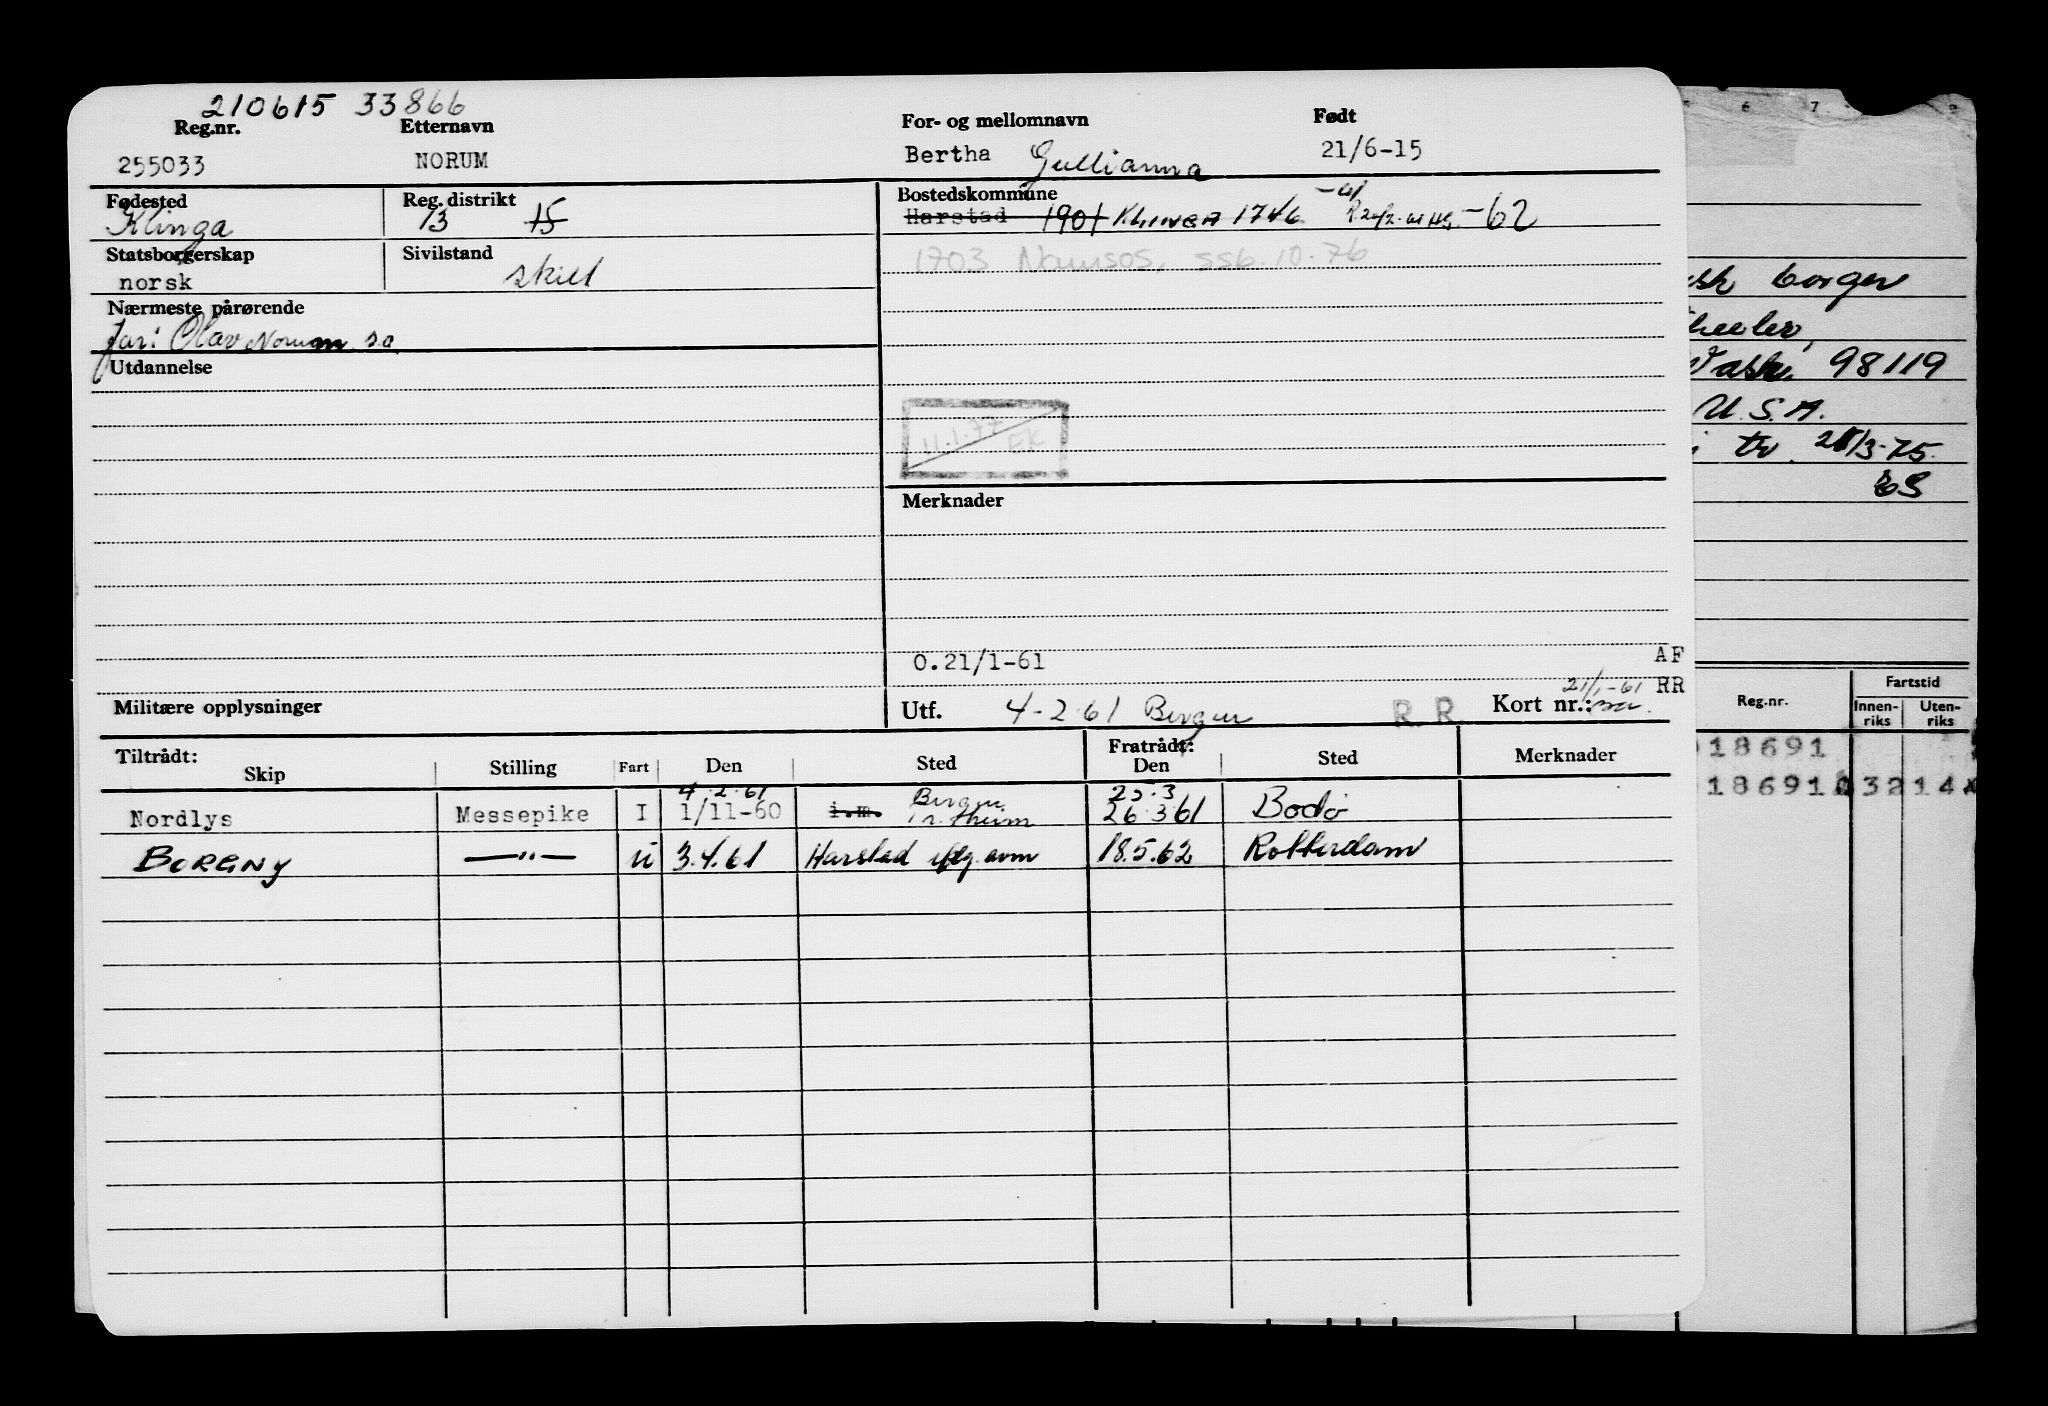 210615 33866
Reg.nr. Etternavn For- og mellomnavn Født
255033 NORUM Bertha Gullianna 21/6-15
Fødested Reg. distrikt Bostedskommune
Klinga 13 15 Harstad 1901 Klinga 1746 -61 -62
Statsborgerskap Sivilstand
norsk skilt 1703 Namsos, ssb.10.76
Nærmeste pårørende
far: Olav Norum sa
Utdannelse
11.1.77 EK
Merknader
O.21/1-61 AF
21/1-61 RR
Militære opplysninger Utf. 4-2-61 Bergen R R Kort nr.:
Tiltrådt: Fratrådt:
Skip Stilling Fart Den Sted Den Sted Merknader
4.2.61 Bergen 25.3
Nordlys Messepike I 1/11-60 i.m. Tr.heim 26.3.61 Bodø
BORGNY —"— U 3.4.61 Harstad 18.5.62 Rotterdam
6 7 9
sk borger
Wash. 98119
U.S.A.
tv. 28/3-75.
ES
Fartstid
Reg.nr. Innen-riks Uten-riks
18691
18691 3214